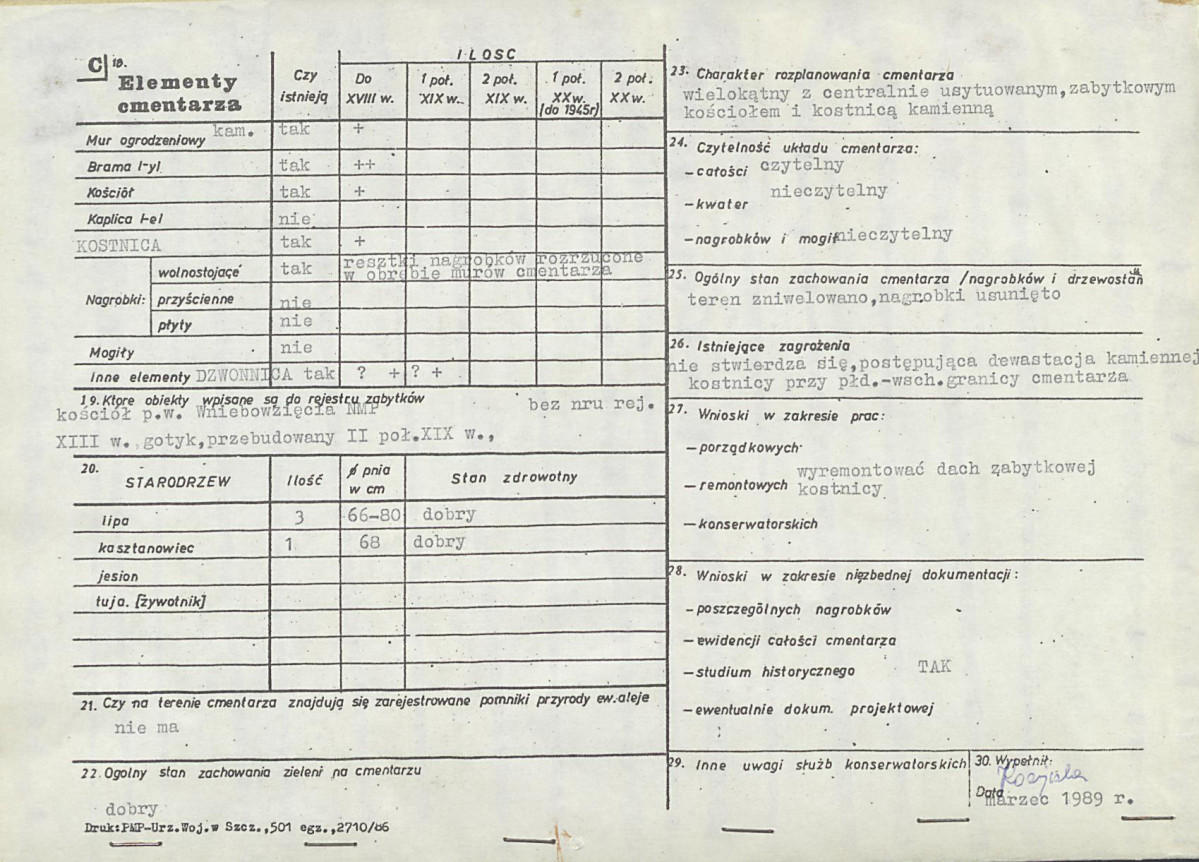 C 18.
Elementy
cmentarza
Czy
istnieją
ILOSC
Do
XVIII w.
1 poł.
XIX w.
2 poł.
XIX w.
1 poł.
XX w.
(do 1945r)
2 poł.
XX w.
Mur ogrodzeniowy kam. tak +
Brama I-yl tak ++
Kościół tak +
Kaplica I-el nie
KOSTNICA tak +
Nagrobki: wolnostojące tak resztki nagrobków rozrzucone
w obrębie murów cmentarza
przyścienne nie
płyty nie
Mogiły nie
Inne elementy DZWONNICA tak ? + ? +
19. Które obiekty wpisane są do rejestru zabytków
kościół p.w. Wniebowzięcia NMP bez nru rej.
XIII w. gotyk,przebudowany II poł.XIX w.,
20.
STARODRZEW Ilość ø pnia
w cm Stan zdrowotny
lipa 3 66-80 dobry
kasztanowiec 1 68 dobry
jesion
tuja. [żywotnik]
21. Czy na terenie cmentarza znajdują się zarejestrowane pomniki przyrody ew.aleje
nie ma
22. Ogolny stan zachowania zieleni na cmentarzu
dobry
Druk:PMP-Urz.Woj.w Szcz.,501 egz.,2710/86
23. Charakter rozplanowania cmentarza
wielokątny z centralnie usytuowanym,zabytkowym
kościołem i kostnicą kamienną
24. Czytelność układu cmentarza:
-całości czytelny
nieczytelny
-kwater
-nagrobków i mogił nieczytelny
25. Ogólny stan zachowania cmentarza /nagrobków i drzewostan
teren zniwelowano,nagrobki usunięto
26. Istniejące zagrożenia
nie stwierdza się,postępująca dewastacja kamiennej
kostnicy przy płd.-wsch.granicy cmentarza
27. Wnioski w zakresie prac:
-porządkowych
wyremontować dach zabytkowej
-remontowych kostnicy
-konserwatorskich
28. Wnioski w zakresie niezbednej dokumentacji:
-poszczególnych nagrobków
-ewidencji całości cmentarza
-studium historycznego TAK
-ewentualnie dokum. projektowej
29. Inne uwagi służb konserwatorskich
30. Wypełnił:
Data marzec 1989 r.